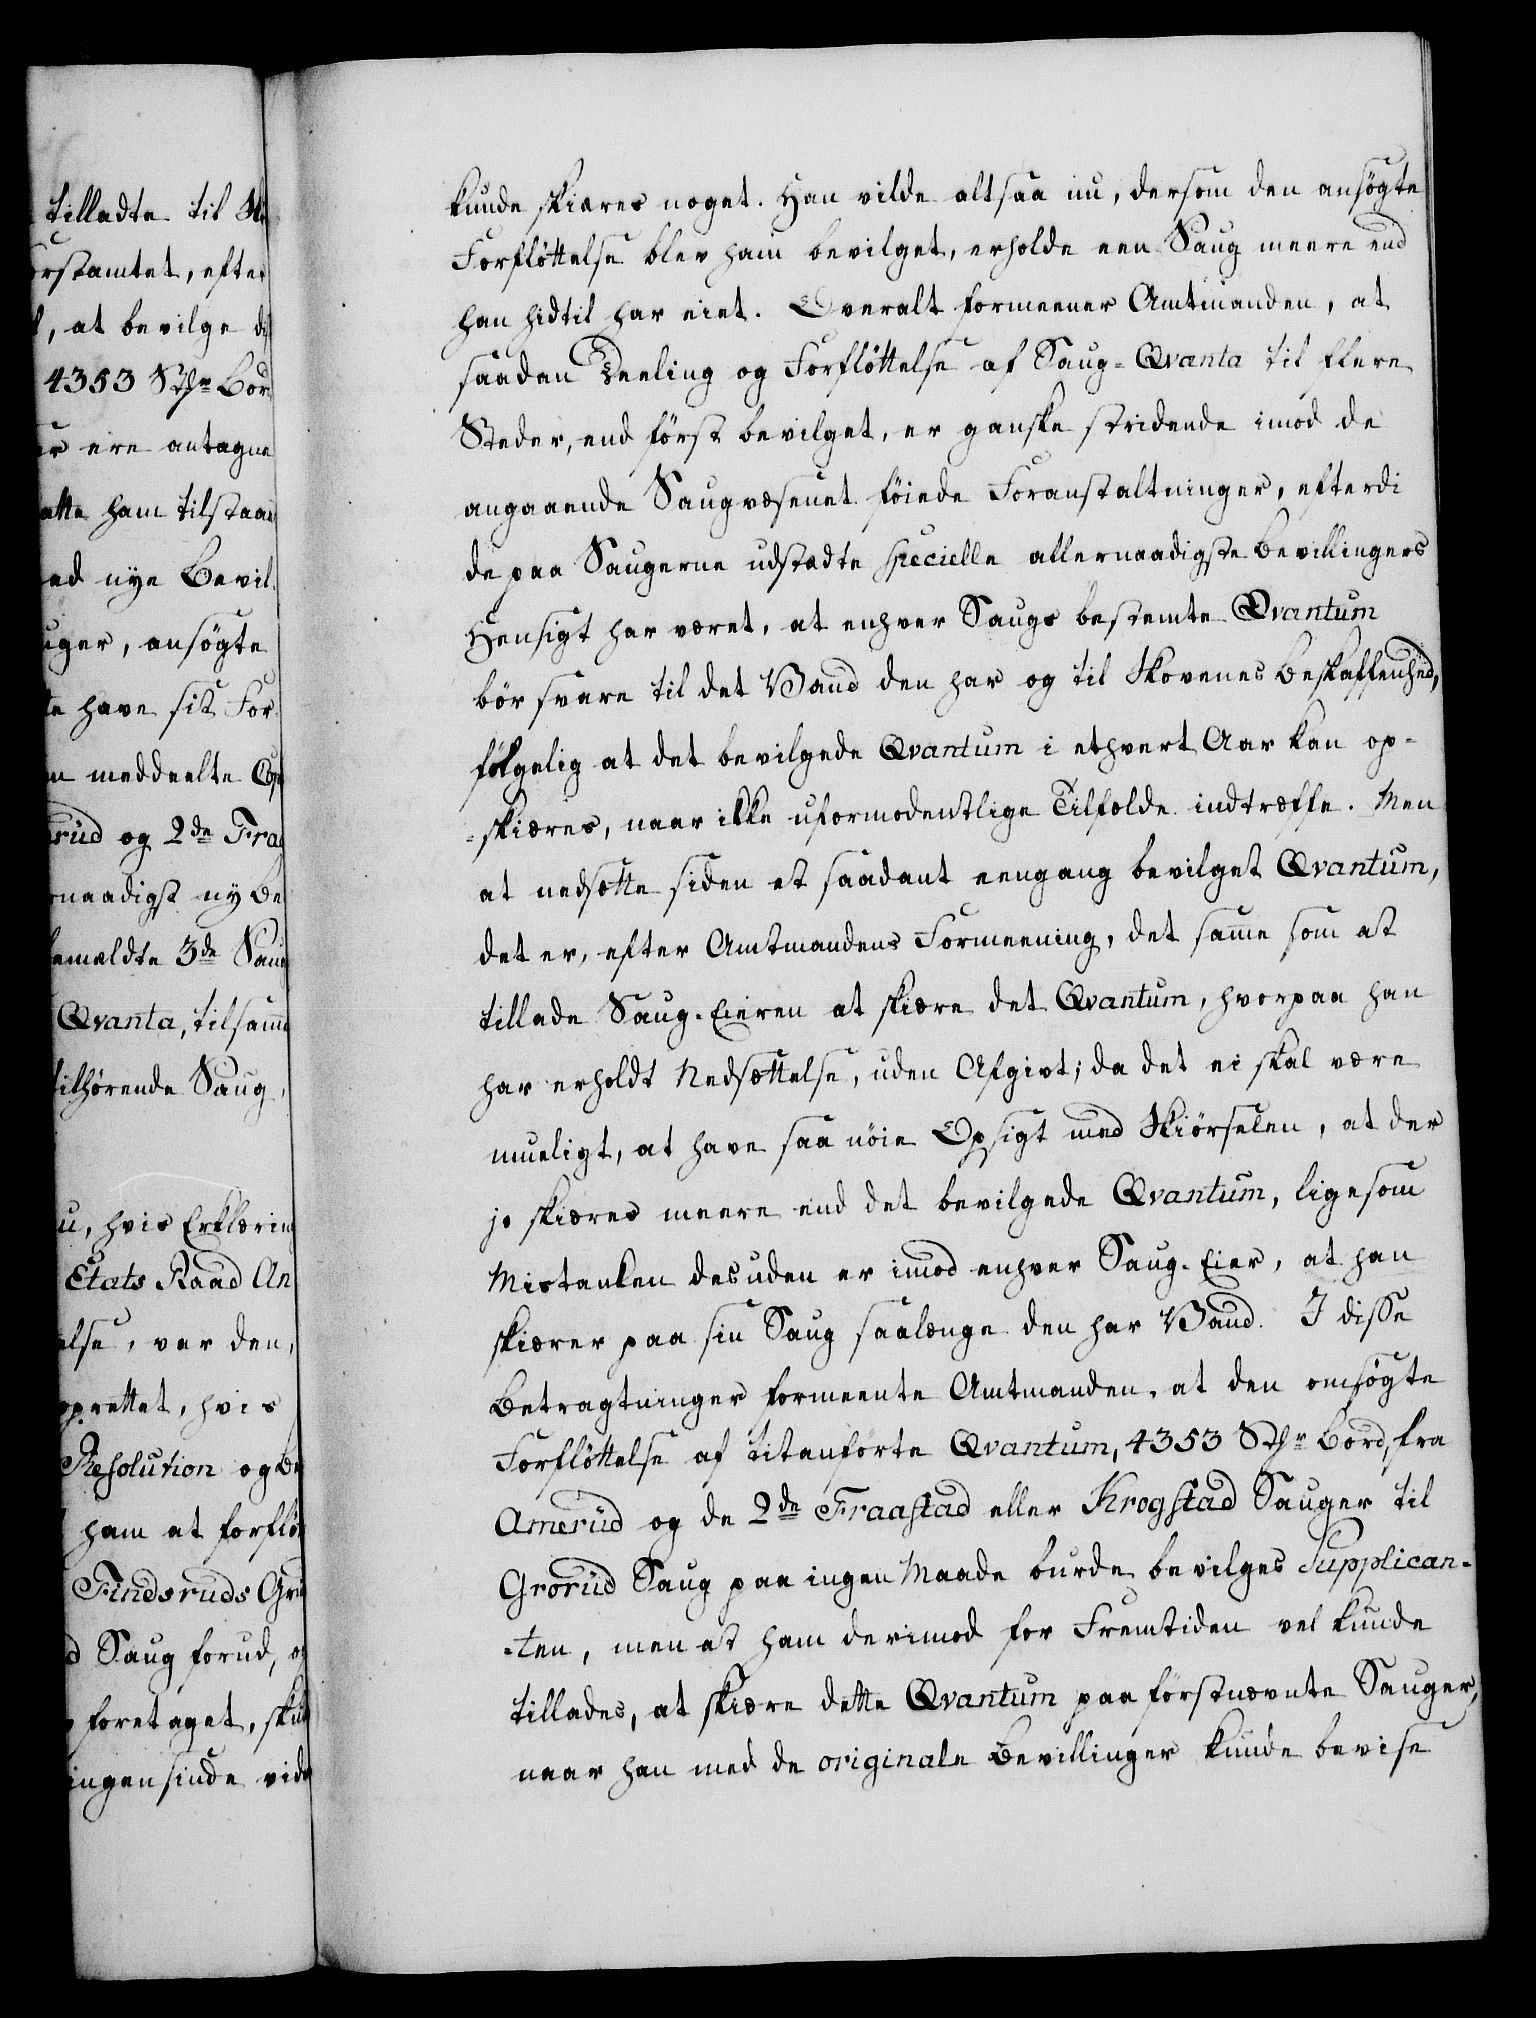 tilladte til
orstamtet, efter
, at bevilge
4353 Stkr Bor
ere antagne
atte ham tilstaae
ed nye Bevil-
uger, ansøgte
have sit For-
meddeelte
rud og 2de Fra
naadigst ny Be
emældte 3de Saug
Qvanta, tilsam̅
tilhørende Saug,
u, hvis Erklæring
Etats Raad An
else, var den,
oprettet, hvis
Resolution og
ham at forflø
Findsruds
Saug forud,
foretaget,
ingensinde vid
kunde skiæres noget. Han vilde altsaa nu, dersom den ansøgte
Forfløttelse blev ham bevilget, erholde een Saug meere end
han hidtil har eiet. Overalt formeener Amtmanden, at
saadan Deeling og Forfløttelse af Saug-Qvanta til flere
Steder, end først bevilget, er ganske stridende imod de
angaaende Saugvæsenet føiede Foranstaltninger, efterdi
de paa Saugerne udstædte specielle allernaadigste Bevillingers
Hensigt har været, at enhver Saugs bestemte Qvantum
bør svare til det Vand den har og til Skovenes Beskaffenhed,
følgelig at det bevilgede Qvantum i ethvert Aar kan op-
-skiæres, naar ikke uformodentlige Tilfælde indtræffe. Men
at nedsætte siden et saadant eengang bevilget Qvantum,
det er, efter Amtmandens Formeening, det sam̅e som at
tillade Saug-Eieren at skiære det Qvantum, hvorpaa han
har erholdt Nedsættelse, uden Afgivt; da det ei skal være
mueligt, at have saa nøie Opsigt med Skiørselen, at der
jo skiæres meere end det bevilgede Qvantum, ligesom
Mistanken desuden er imod enhver Saug-Eier, at han
skiærer paa sin Saug saalænge den har Vand. I disse
Betragtninger formeente Amtmanden, at den omsøgte
Forfløttelse af titanførte Qvantum, 4353 Stkr Bord, fra
Amerud og de 2de Fraastad eller Krogstad Sauger til
Grorud Saug paa ingen Maade burde bevilges Supplican-
-ten, men at ham derimod for Fremtiden vel kunde
tillades, at skiære dette Qvantum paa førstnævnte Sauger,
naar han med de originale Bevillinger kunde bevise